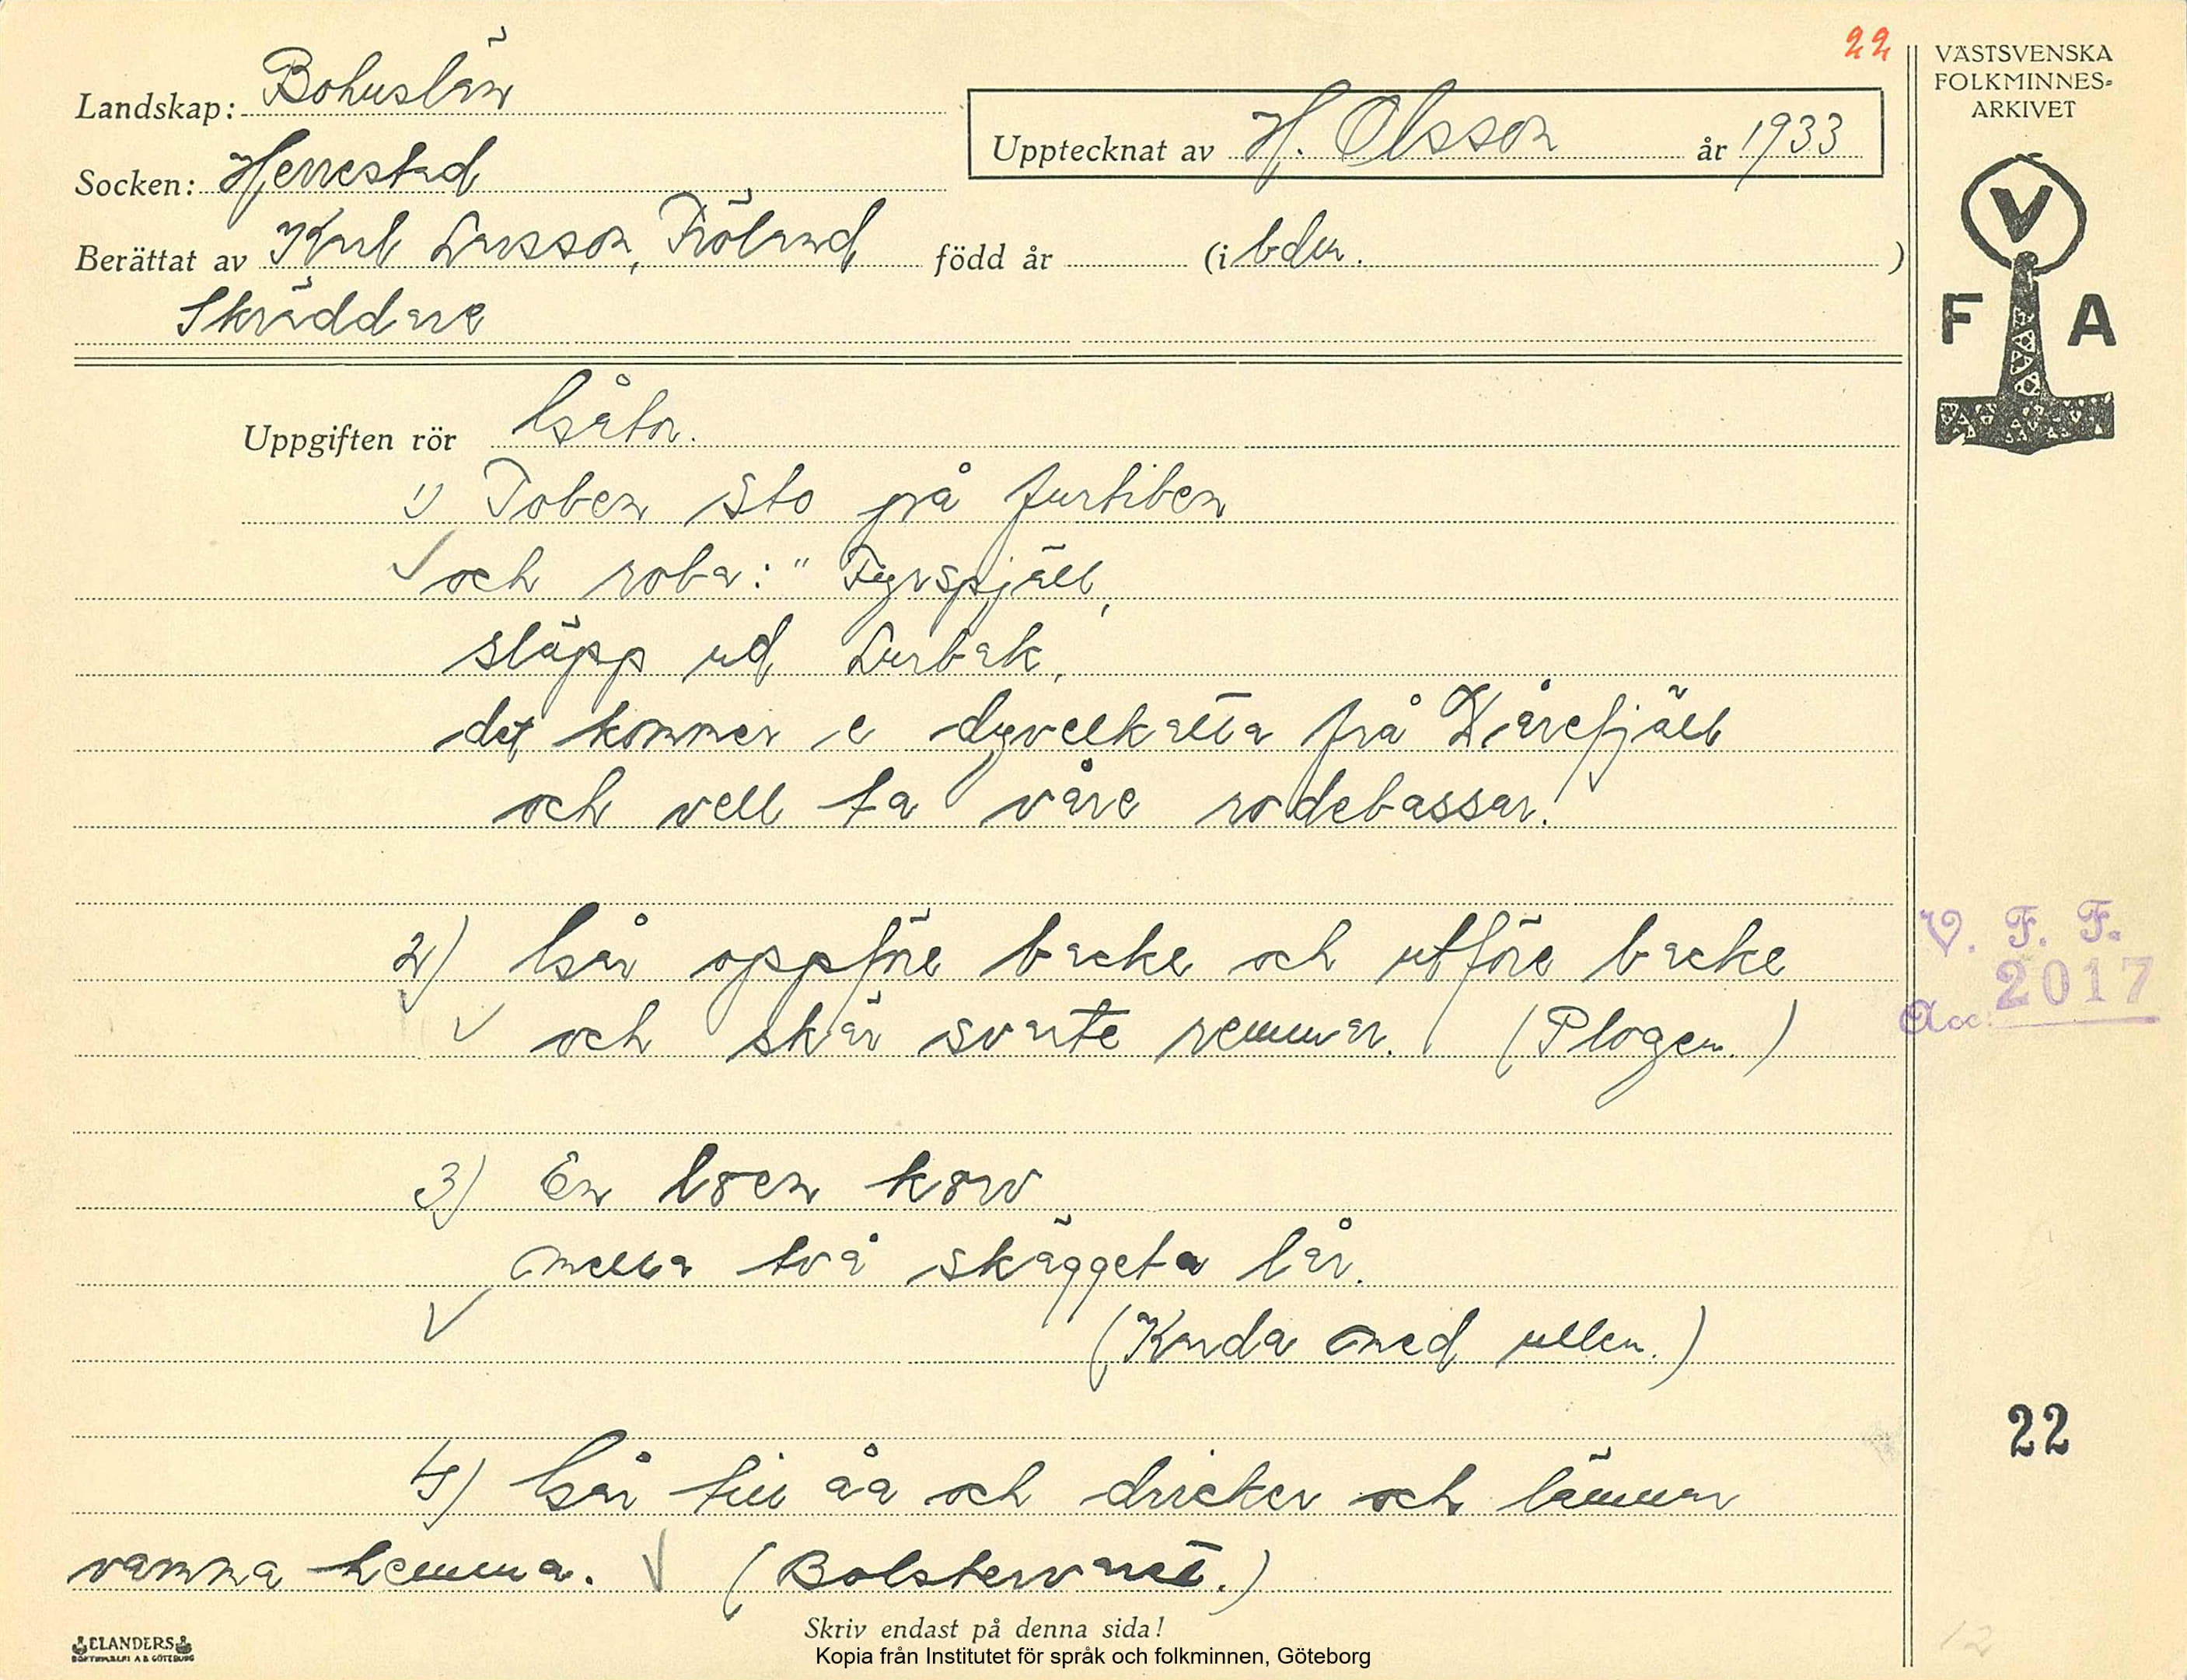 22
VÄSTSVENSKA
FOLKMINNES-
ARKIVET
Landskap: Bohuslän
Upptecknat av H. Olsson år 1933
Socken: Herrestad
Berättat av Karl Larsson, Fröland född år (i bdm.)
Skräddare
V
F A
Uppgiften rör Gåtor.
1) Toben sto på furtiben
och roba: "Fyrspjäll,
släpp ud Lurbak,
det kommer e dyvelkatta frå Kårefjäll
och vell ta våre rodebassar.
2) Går oppföre backe och utföre backe
och skär svarte remmar. (Plogen.)
V. F. F.
Acc. 2017
3) En loen korv
mella två skäggeta lår.
(Karda med ullen.)
22
4) Går till åa och dricker och lämnar
vamma hemma. (Bolstervaret.)
Skriv endast på denna sida!
ELANDERS
BOKTRYCKERI A B GÖTEBORG
Kopia från Institutet för språk och folkminnen, Göteborg
12